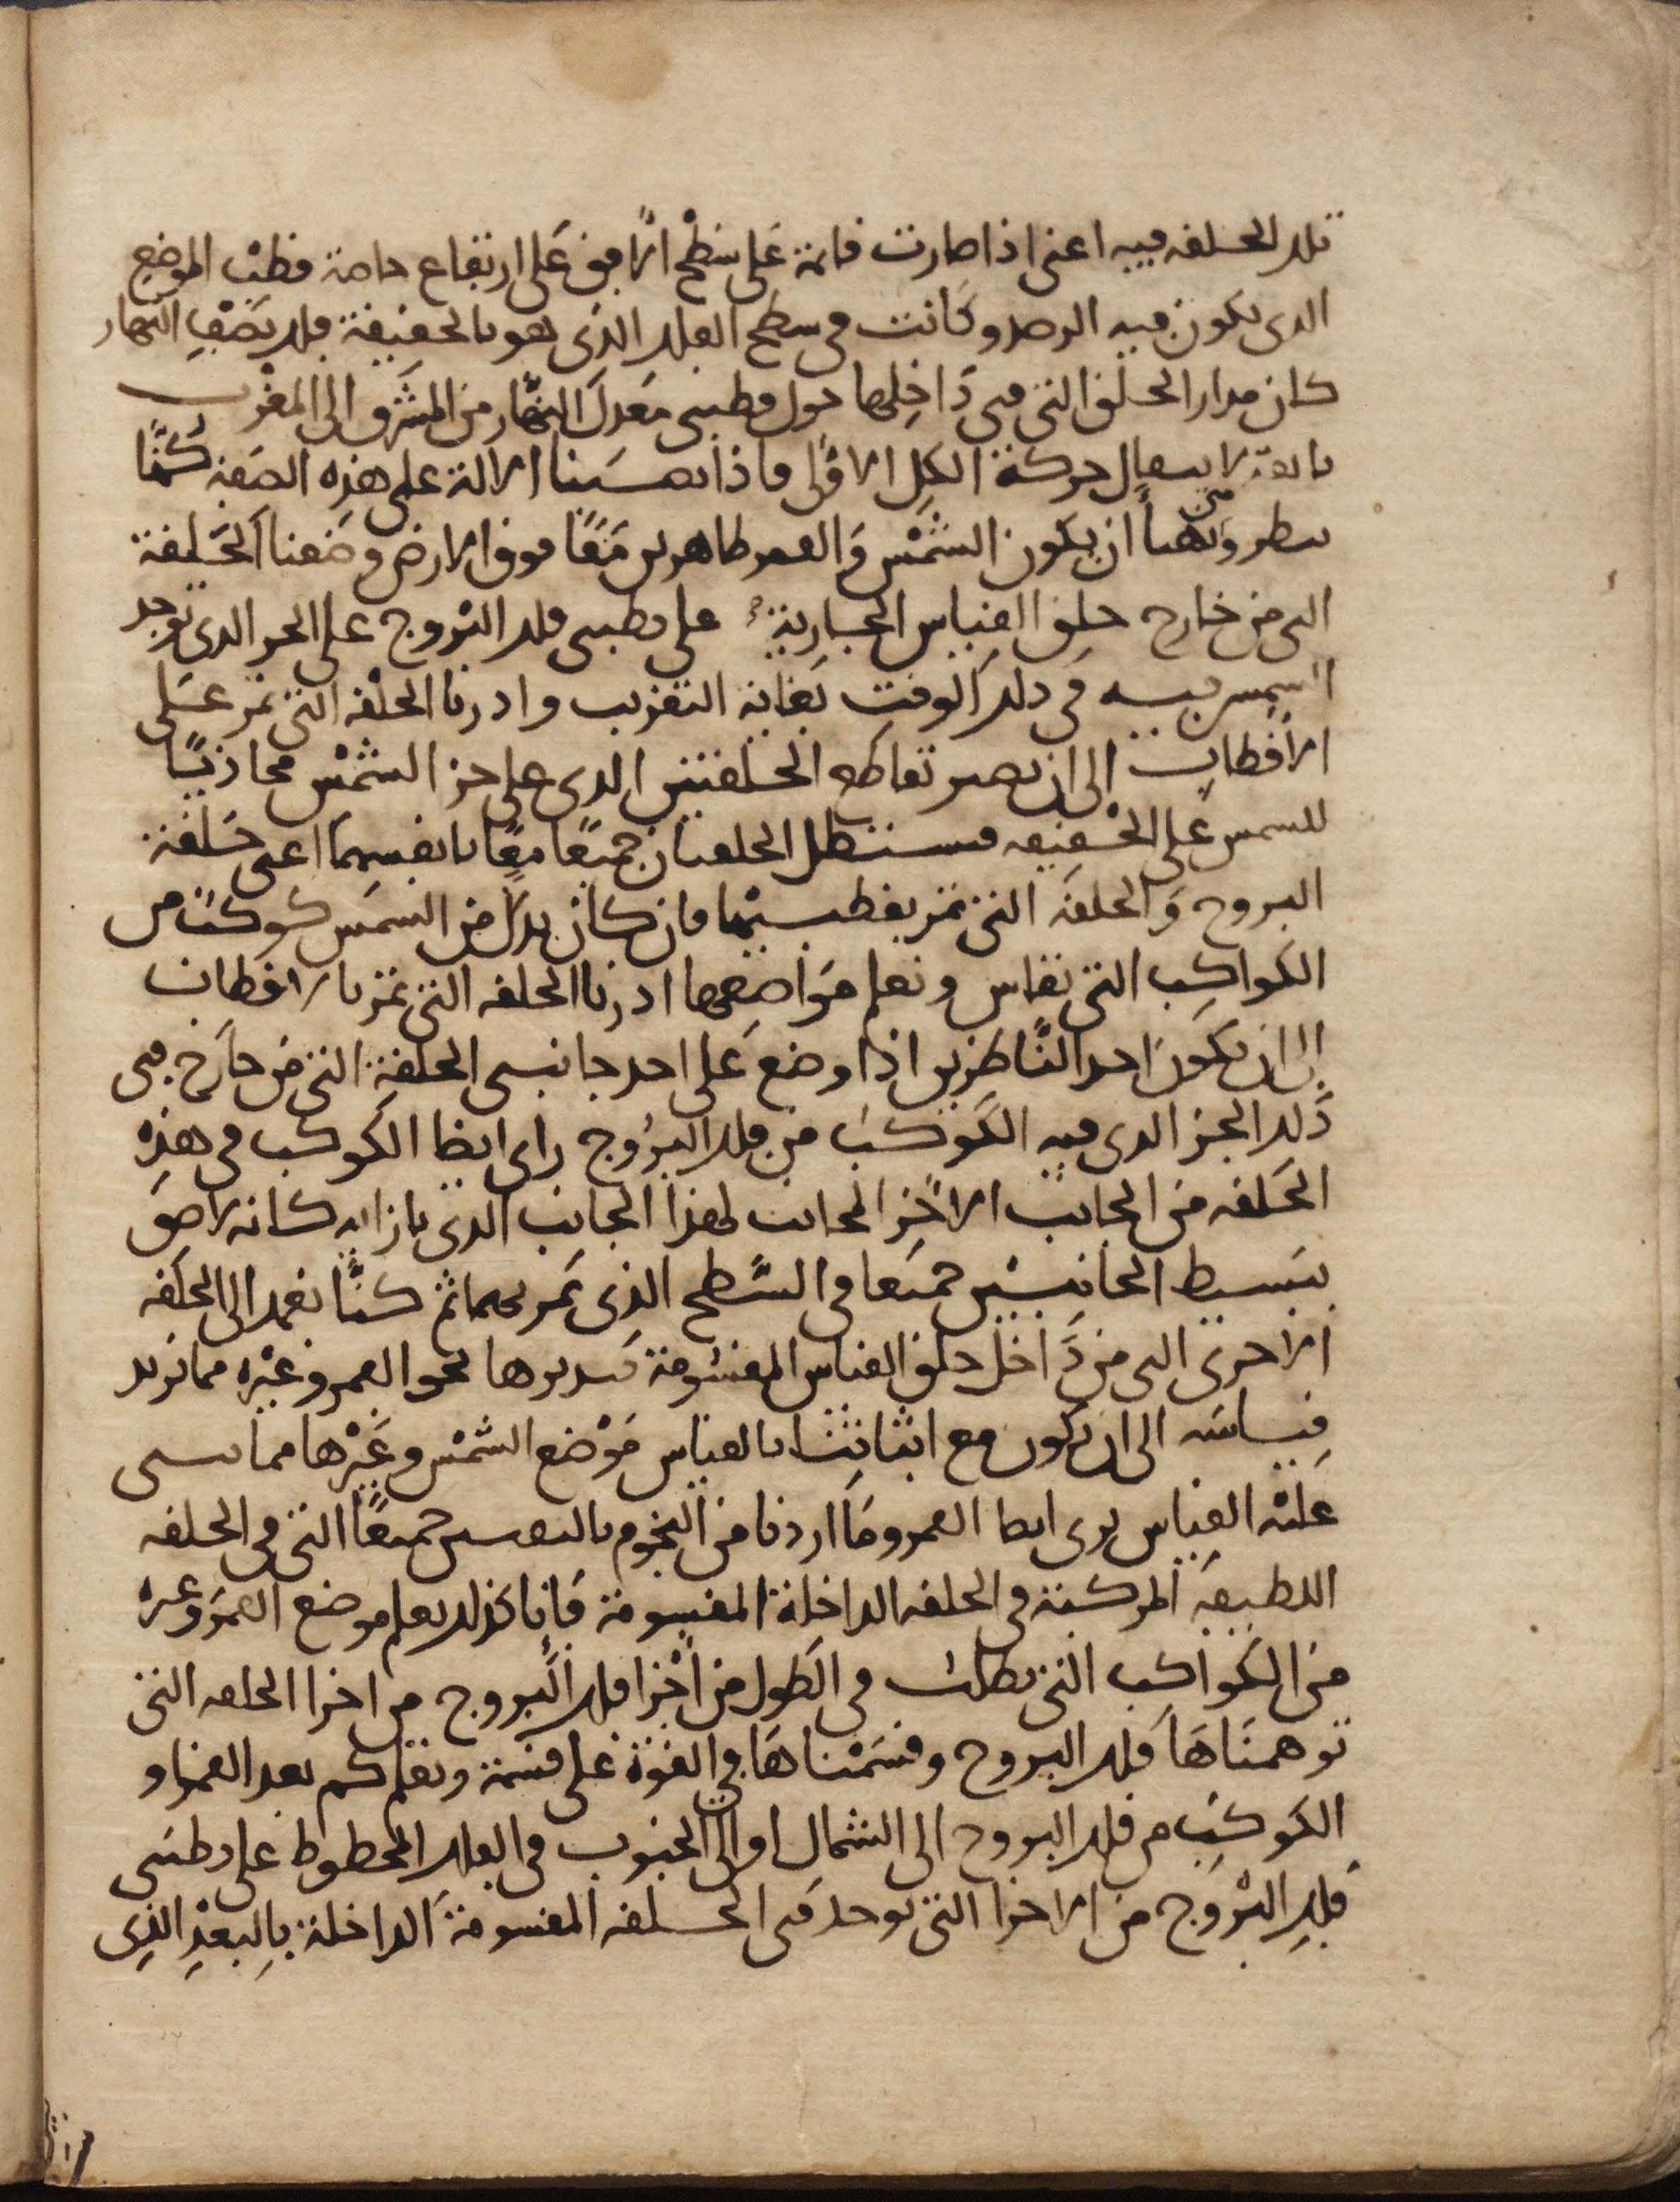 تلك الحلقه فيه اعنى اذا صارت قائمة على سطح الافق على ارتفاع خاصة قطب الموضع
الدى يكون فيه الرصد وكانت فى سطح الفلك الذى هو بالحقيقة فلك نصف النهار
كان مدار الحلق التى فى داخلها حول قطبى معدل النهار من المشرق الى المغرب
حركة الكل الاولى فاذا نصبنا الالة على هذه الصفة كنا
متى ان يكون الشمس والقمر ظاهرين معًا فوق الارض وضعنا الحلقة
التى من خارج حلق القياس على قطبى فلك البروج على الجز الدى توجد
الشمس فيه فى ذلك الوقت بغاية التقريب وادرنا الحلقه التى تمر على
الاقطاب الى ان يصير تقاطع الحلقتين الدى على جز الشمس محاذيًا
للشمس على الحقيقه فتستظل الحلقتان جميعًا معًا بانفسهما اعنى حلقة
البروج والحلقه التى تمر بقطبيها فان كان بدل من الشمس كوكبًا من
الكواكب التى تقاس ونعلم مواضعها ادرنا الحلقه التى تمر بالاقطاب
الى ان يكون احد الناظرين اذا وضع على احد جانبى الحلقة التى من خارج فى
ذلك الجز الدى فيه الكوكب من فلك البروج راى ايضا الكوكب فى هذه
الحلقه من الجانب الاخر المحاذى لهذا الجانب الدى بازائه كانه لاصق
ببسيط الجانبين جميعا فى السطح الذى يمر بهما ثم كنا نعمد الى الحلقه
الاخرى التى من داخل حلق القياس المقسومة فنديرها نحو القمر وغيره مما نريد
قياسه الى ان يكون مع اثباتنا بالقياس موضع الشمس وغيرها مما يبنى
عليه القياس يرى ايضا القمر وما اردنا من النجوم بالثقبين جميعًا التى فى الحلقه
اللطيفه المركبة فى الحلقه الداخلة المقسومة فانا كذلك نعلم موضع القمر وغيره
من الكواكب التى تطلب فى الطول من اجزا فلك البروج من اجزا الحلقه التى
توهمناها فلك البروج وقسمناها فى القوة على قسمة ونعلم كم بعد القمر او
الكوكب من فلك البروج الى الشمال او الى الجنوب فى الفلك المخطوط على قطبى
فلك البروج من الاجزا التى توجد فى الحلقه المقسومة الداخلة بالبعد الذى